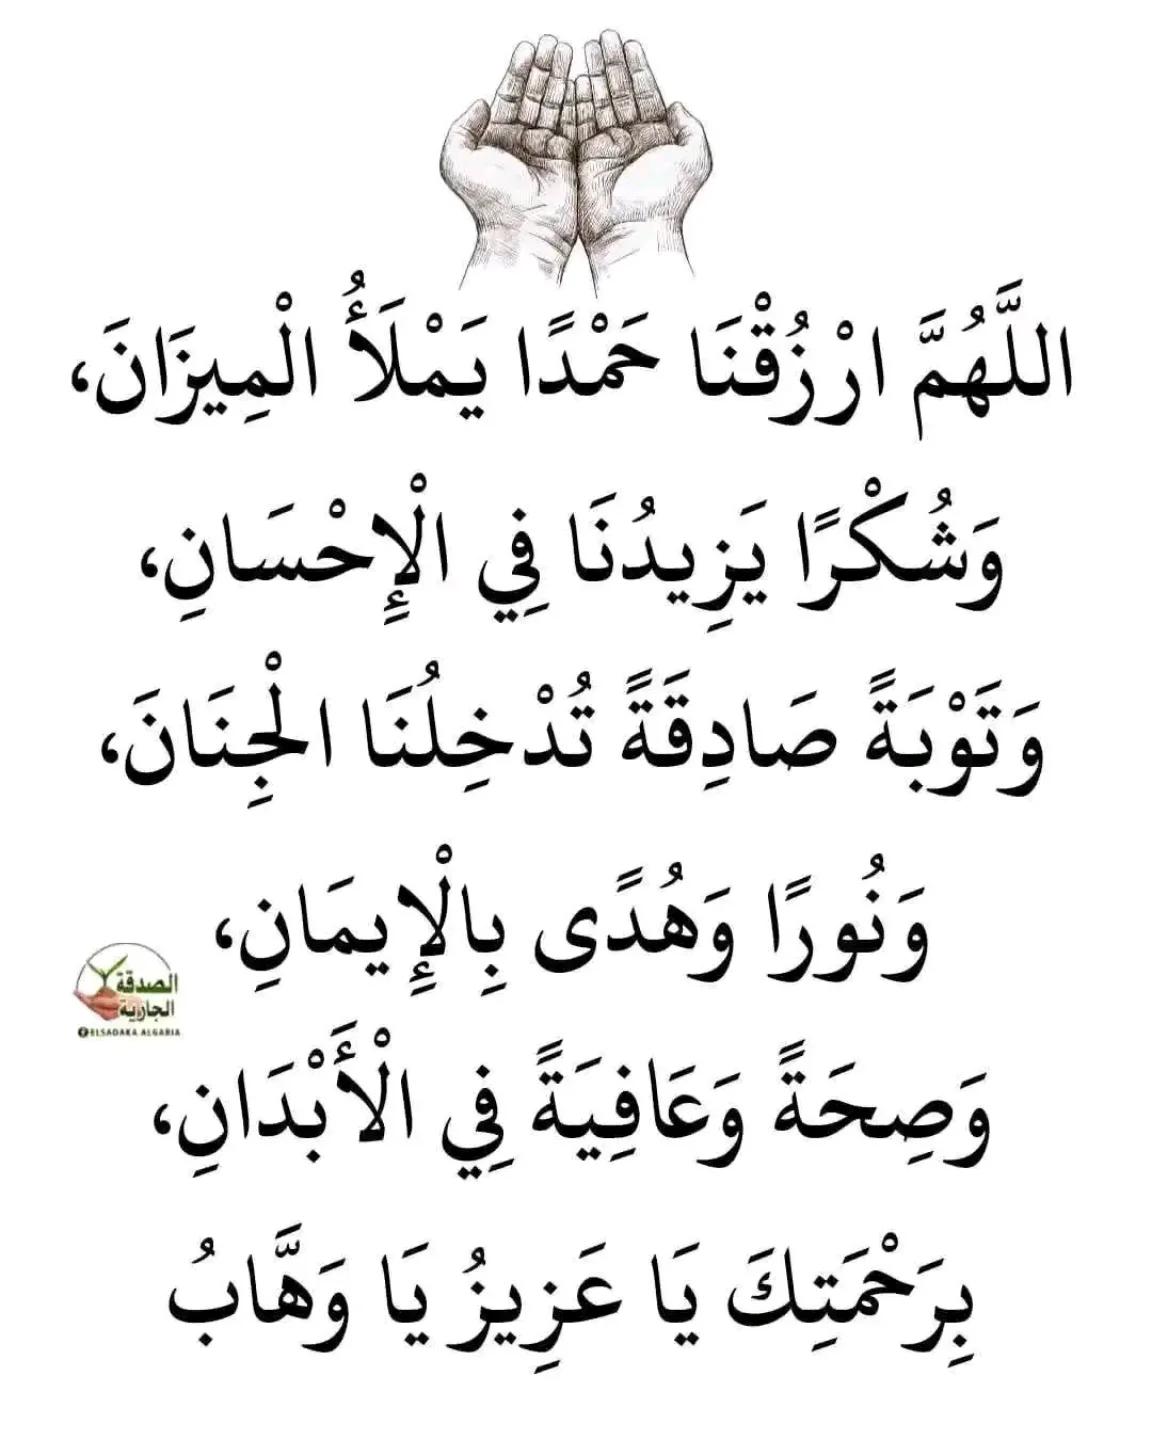 اللَّهُمَّ ارْزُقْنَا حَمْدًا يَمْلَأُ الْمِيزَانَ،
وَشُكْرًا يَزِيدُنَا فِي الْإِحْسَانِ،
وَتَوْبَةً صَادِقَةً تُدْخِلُنَا الْجِنَانَ،
وَنُورًا وَهُدًى بِالْإِيمَانِ،
الصدقة
الجارية
ELSADAKA ALGARIA
وَصِحَةً وَعَافِيَةً فِي الْأَبْدَانِ،
بِرَحْمَتِكَ يَا عَزِيزُ يَا وَهَّابُ